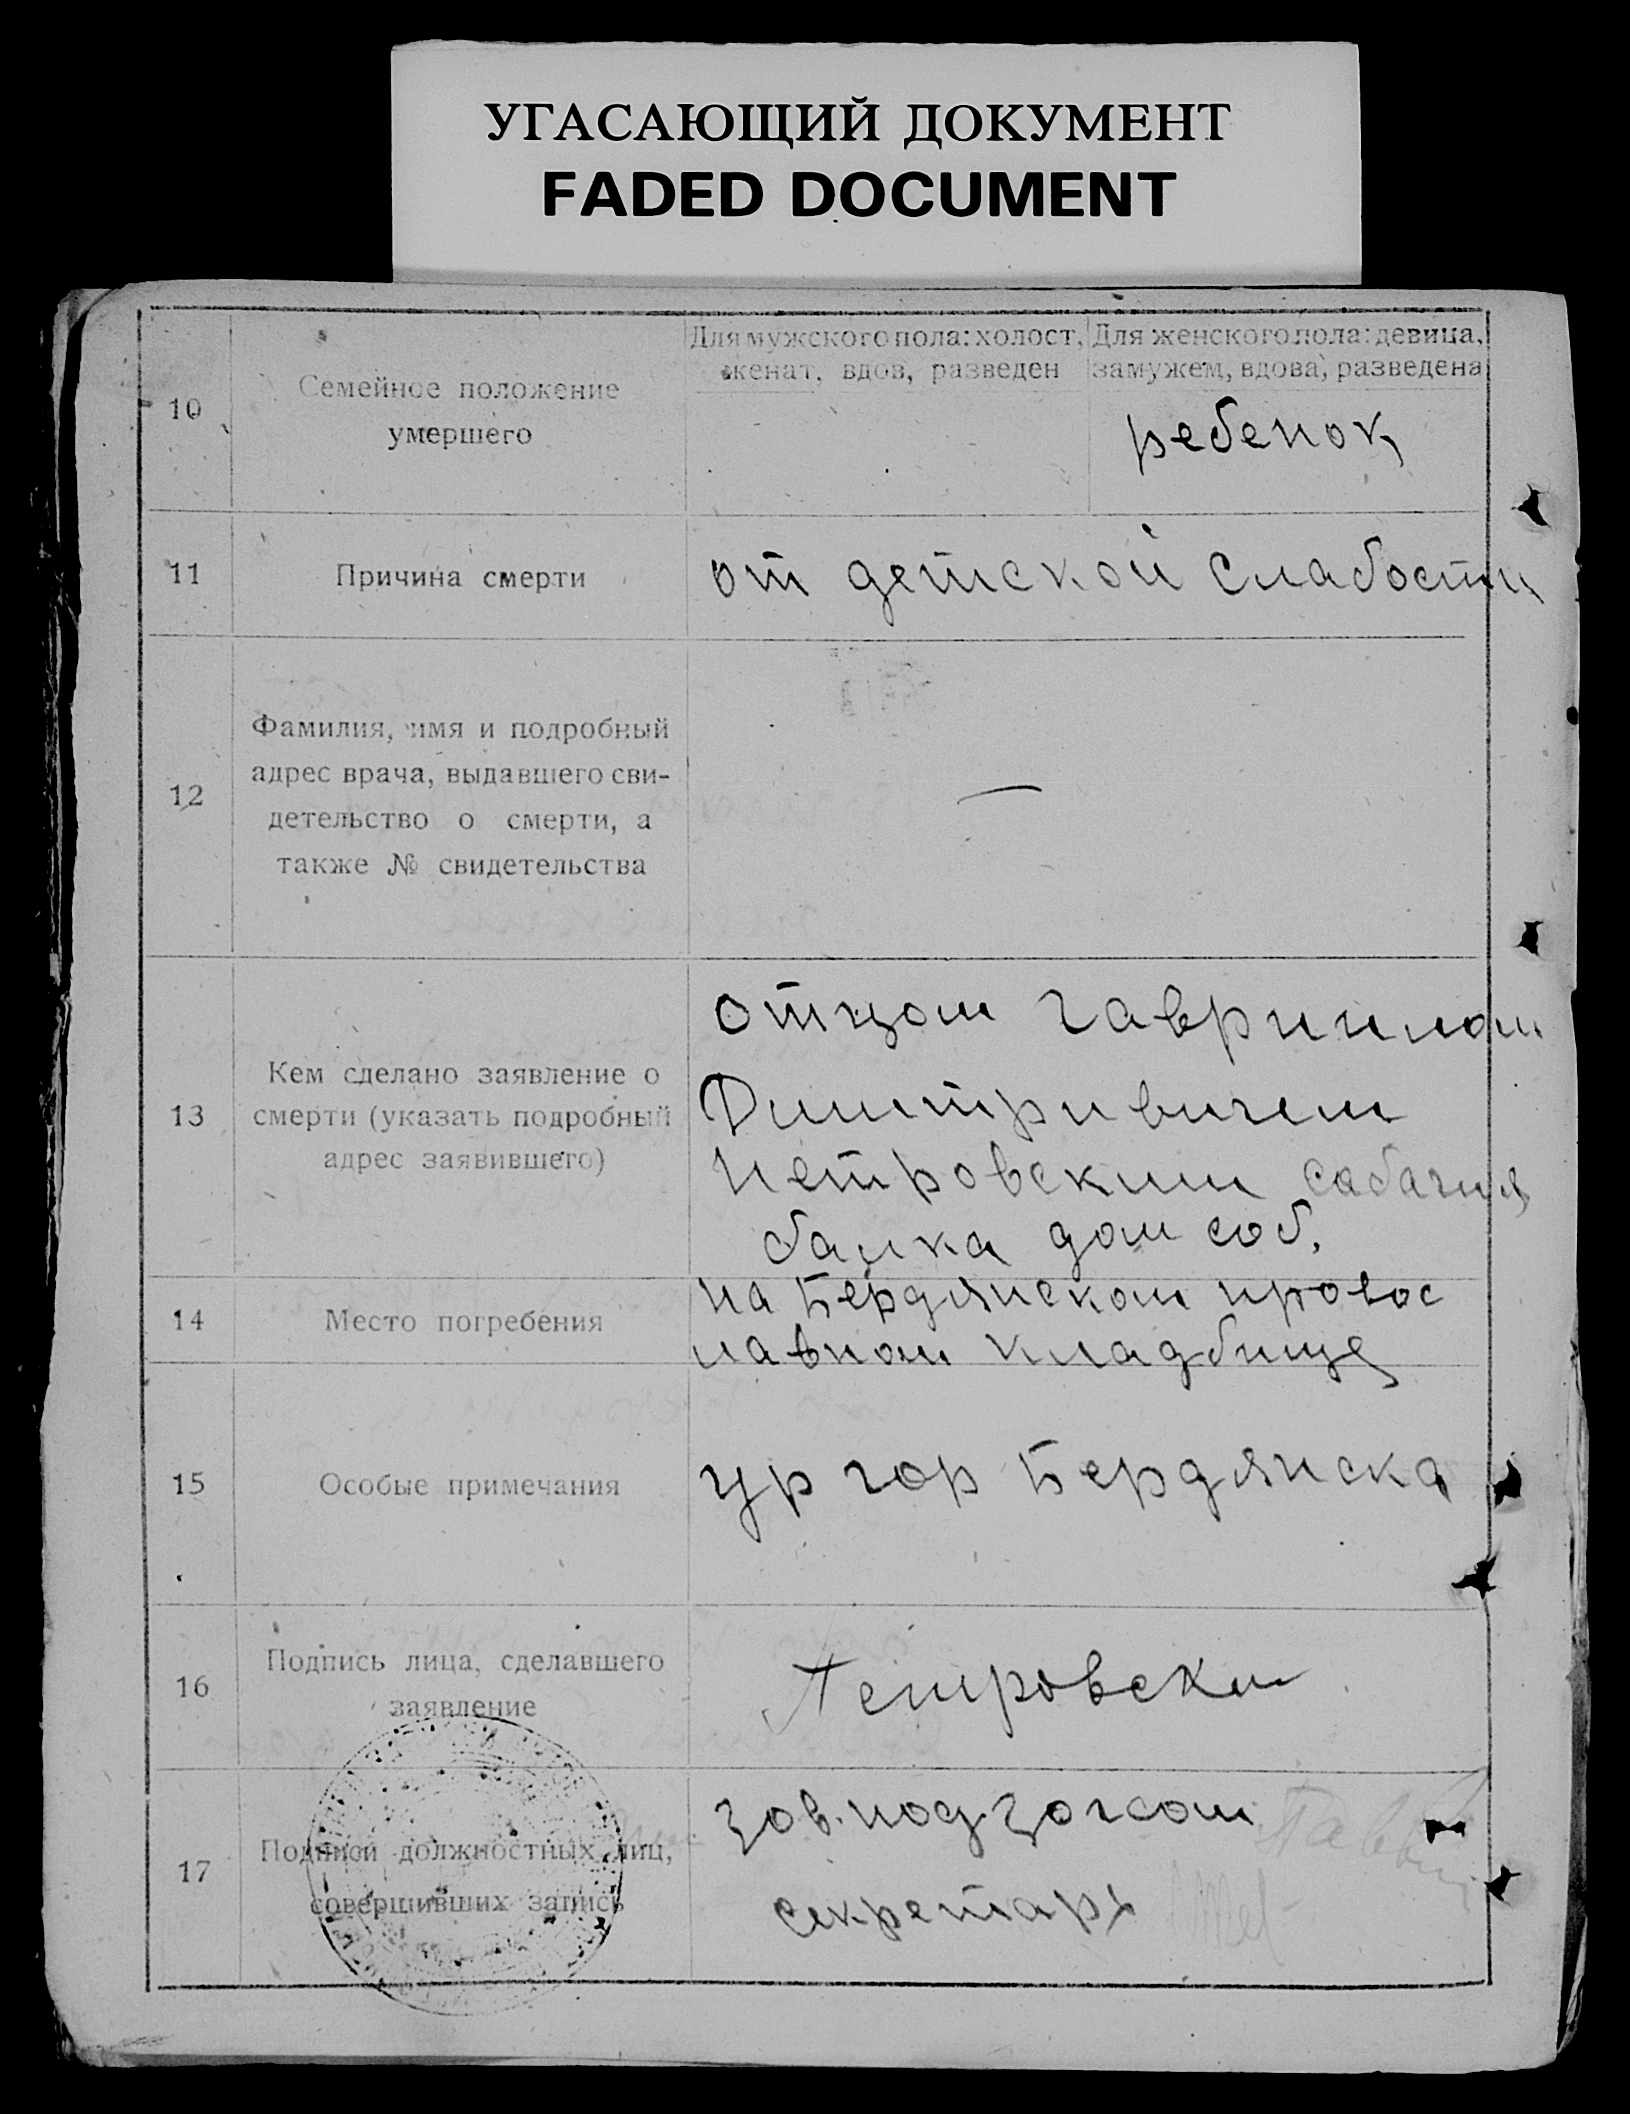 УГАСАЮЩИЙ ДОКУМЕНТ
FADED DOCUMENT
10
Семейное положение
умершего
Для мужского пола: холост,
женат, вдов, разведен
Для женского пола: девица,
замужем, вдова, разведена
ребенок
11
Причина смерти
от детской слабости
12
Фамилия, имя и подробный
адрес врача, выдавшего сви-
детельство о смерти, а
также № свидетельства
—
13
Кем сделано заявление о
смерти (указать подробный
адрес заявившего)
отцом гавриилом
Димтривичем
Петровским сабачия
балка дом соб.
14
Место погребения
на Бердянском провос
лавном кладбище
15
Особые примечания
ур гор Бердянска
16
Подпись лица, сделавшего
заявление
Петровски
17
Подписи должностных лиц,
совершивших запись
зав. подзагсом
секретарь